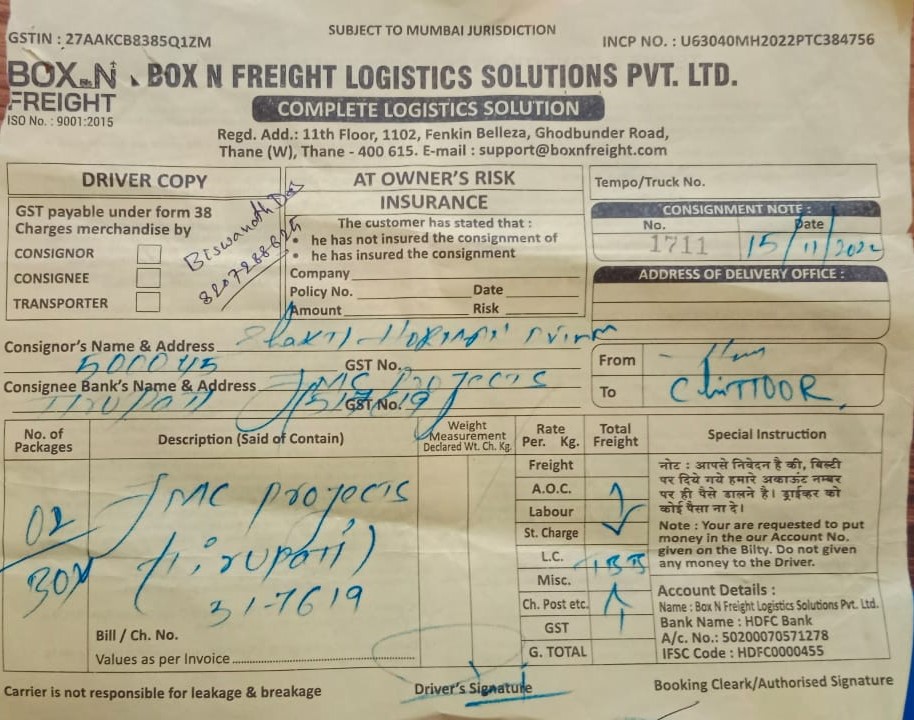 SUBJECT TO MUMBAI JURISDICTION
GSTIN : 27AAKCB8385Q1ZM
INCP NO. : U63040MH2022PTC384756
BOX N FREIGHT
ISO No. : 9001:2015
BOX N FREIGHT LOGISTICS SOLUTIONS PVT. LTD.
COMPLETE LOGISTICS SOLUTION
Regd. Add.: 11th Floor, 1102, Fenkin Belleza, Ghodbunder Road,
Thane (W), Thane - 400 615. E-mail : support@boxnfreight.com
DRIVER COPY
GST payable under form 38
Charges merchandise by
CONSIGNOR
CONSIGNEE
TRANSPORTER
Biswanath Das
AT OWNER'S RISK
INSURANCE
The customer has stated that :
• he has not insured the consignment of
• he has insured the consignment
Company
Policy No. Date
Amount Risk
Tempo/Truck No.
CONSIGNMENT NOTE :
No. Date
1711 15/11/2022
ADDRESS OF DELIVERY OFFICE :
Consignor's Name & Address
500045 GST No.
Consignee Bank's Name & Address JMC Projects
Tirupati GST No. 317619
From
To Chittoor
No. of Packages
Description (Said of Contain)
Weight Measurement Declared Wt. Ch. Kg.
Rate Per. Kg.
Total Freight
Special Instruction
02
Box
JMC Projects
(Tirupati)
317619
Bill / Ch. No.
Values as per Invoice
Freight
A.O.C.
Labour
St. Charge
L.C. TBB
Misc.
Ch. Post etc.
GST
G. TOTAL
नोट : आपसे निवेदन है की, बिल्टी
पर दिये गये हमारे अकाऊंट नम्बर
पर ही पैसे डालने है। ड्राईव्हर को
कोई पैसा ना दे।
Note : Your are requested to put
money in the our Account No.
given on the Bilty. Do not given
any money to the Driver.
Account Details :
Name : Box N Freight Logistics Solutions Pvt. Ltd.
Bank Name : HDFC Bank
A/c. No.: 50200070571278
IFSC Code : HDFC0000455
Carrier is not responsible for leakage & breakage
Driver's Signature
Booking Cleark/Authorised Signature